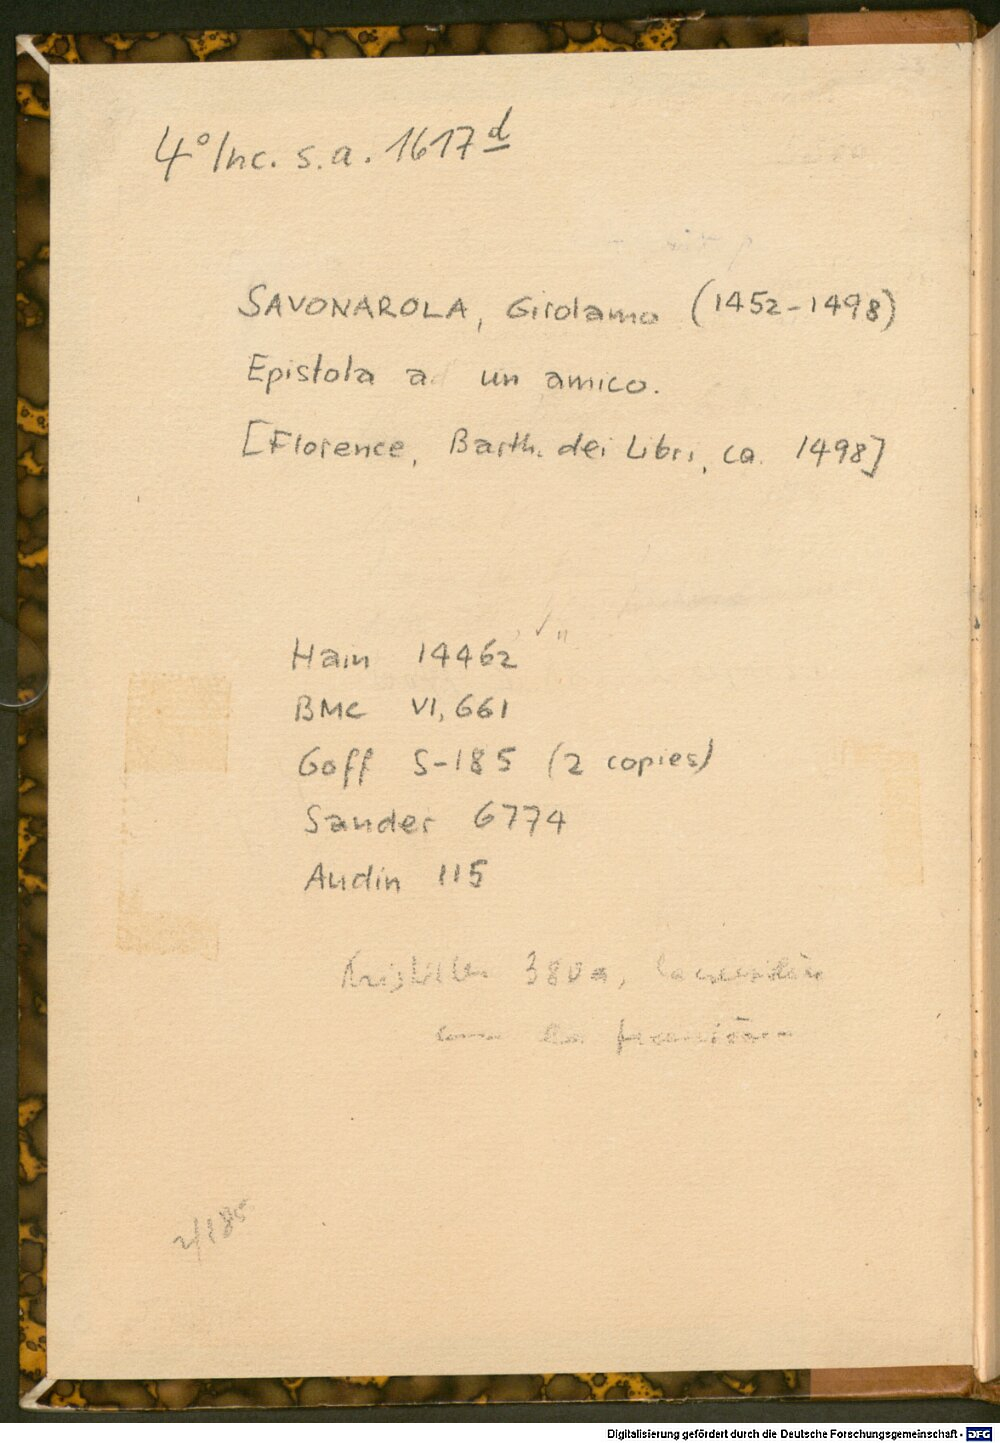 4° Inc. s. a. 1617 d
SAVONAROLA, Girolamo (1452-1498)
Epistola a un amico.
[Florence, Barth. dei Libri, ca. 1498]
Hain 14462
BMC VI, 661
Goff S-185 (2 copies)
Sander 6774
Audin 115
Kristeller 380a,
Digitalisierung gefördert durch die Deutsche Forschungsgemeinschaft - DFG